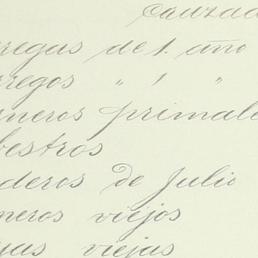 cauzad
regas de 1. año
regos " 1 "
neros primale
bestros
deros de Julio
neros viejos
jas viejas